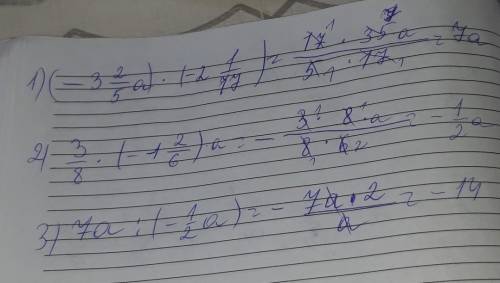 1) (-3 2/5 a) · (-2 1/17) = 17 · 35a / 5 · 17 = 7a
2) 3/8 · (-1 2/6) a = - 3 · 8 · a / 8 · 6 = - 1/2 a
3) 7a : (- 1/2 a) = - 7a · 2 / a = - 14